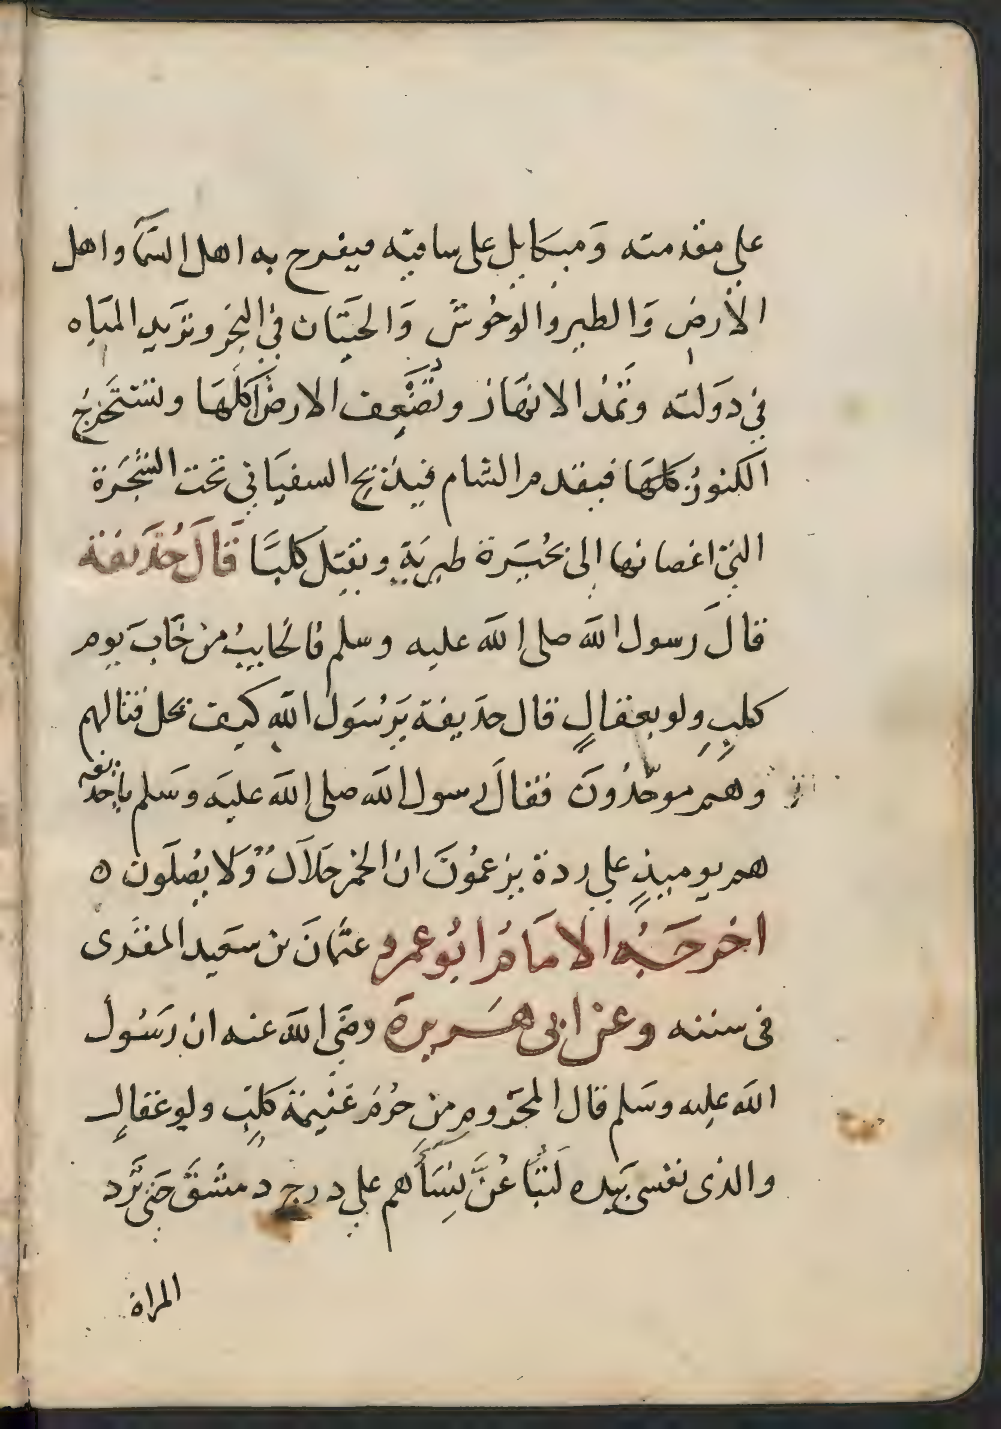 علي مقدمته وَميكايل على ساقيه فيفرح به اهل السَّمآ واهل
الأرضِ وَالطير والوحُوش وَالحيَتان في البحر وتزَيد الميَاه
في دَولته وتمدُ الانهَار وتُضْعِف الارضُ اكلهَا وتستَخرجُ
الكنوزُ كلهَا فيقدم الشام فيَذبح السفيَاني تحت الشجَرة
التي اغصانها إلى بحُيَرة طبريَةٍ ويقتل كلبًا قَالَ حُذَيفة
قالَ رَسول الله صلى الله عليه وسلم فالخَايبُ من خَابَ يوم
كلبٍ ولو بعقالٍ قال حذَيفة يَرسُوَل الله كيف يحل قتالهم
وهم موحِّدُونَ فقالَ رسول الله صلى الله عليَه وسَلم يا حذيفه
هم يوميذٍ علي ردة يزعمُونَ انُ الخمر حَلاَلُ وَلا يصُلَون ه
اخرجَهُ الامَامُ ابُو عمرو عثمانَ بن سَعيد المقَرى
في سننه وعن ابى هَريرة رضَي الله عنه ان رَسُول
الله عليه وسَلم قال المحرُوم من حرُم غَنيمَة كلبٍ ولو عقالٍ
والذى نفسى بَيده لَتبُاعُنَّ نِسَآهم علي درج دمشَق حَتى تُرد
المراة